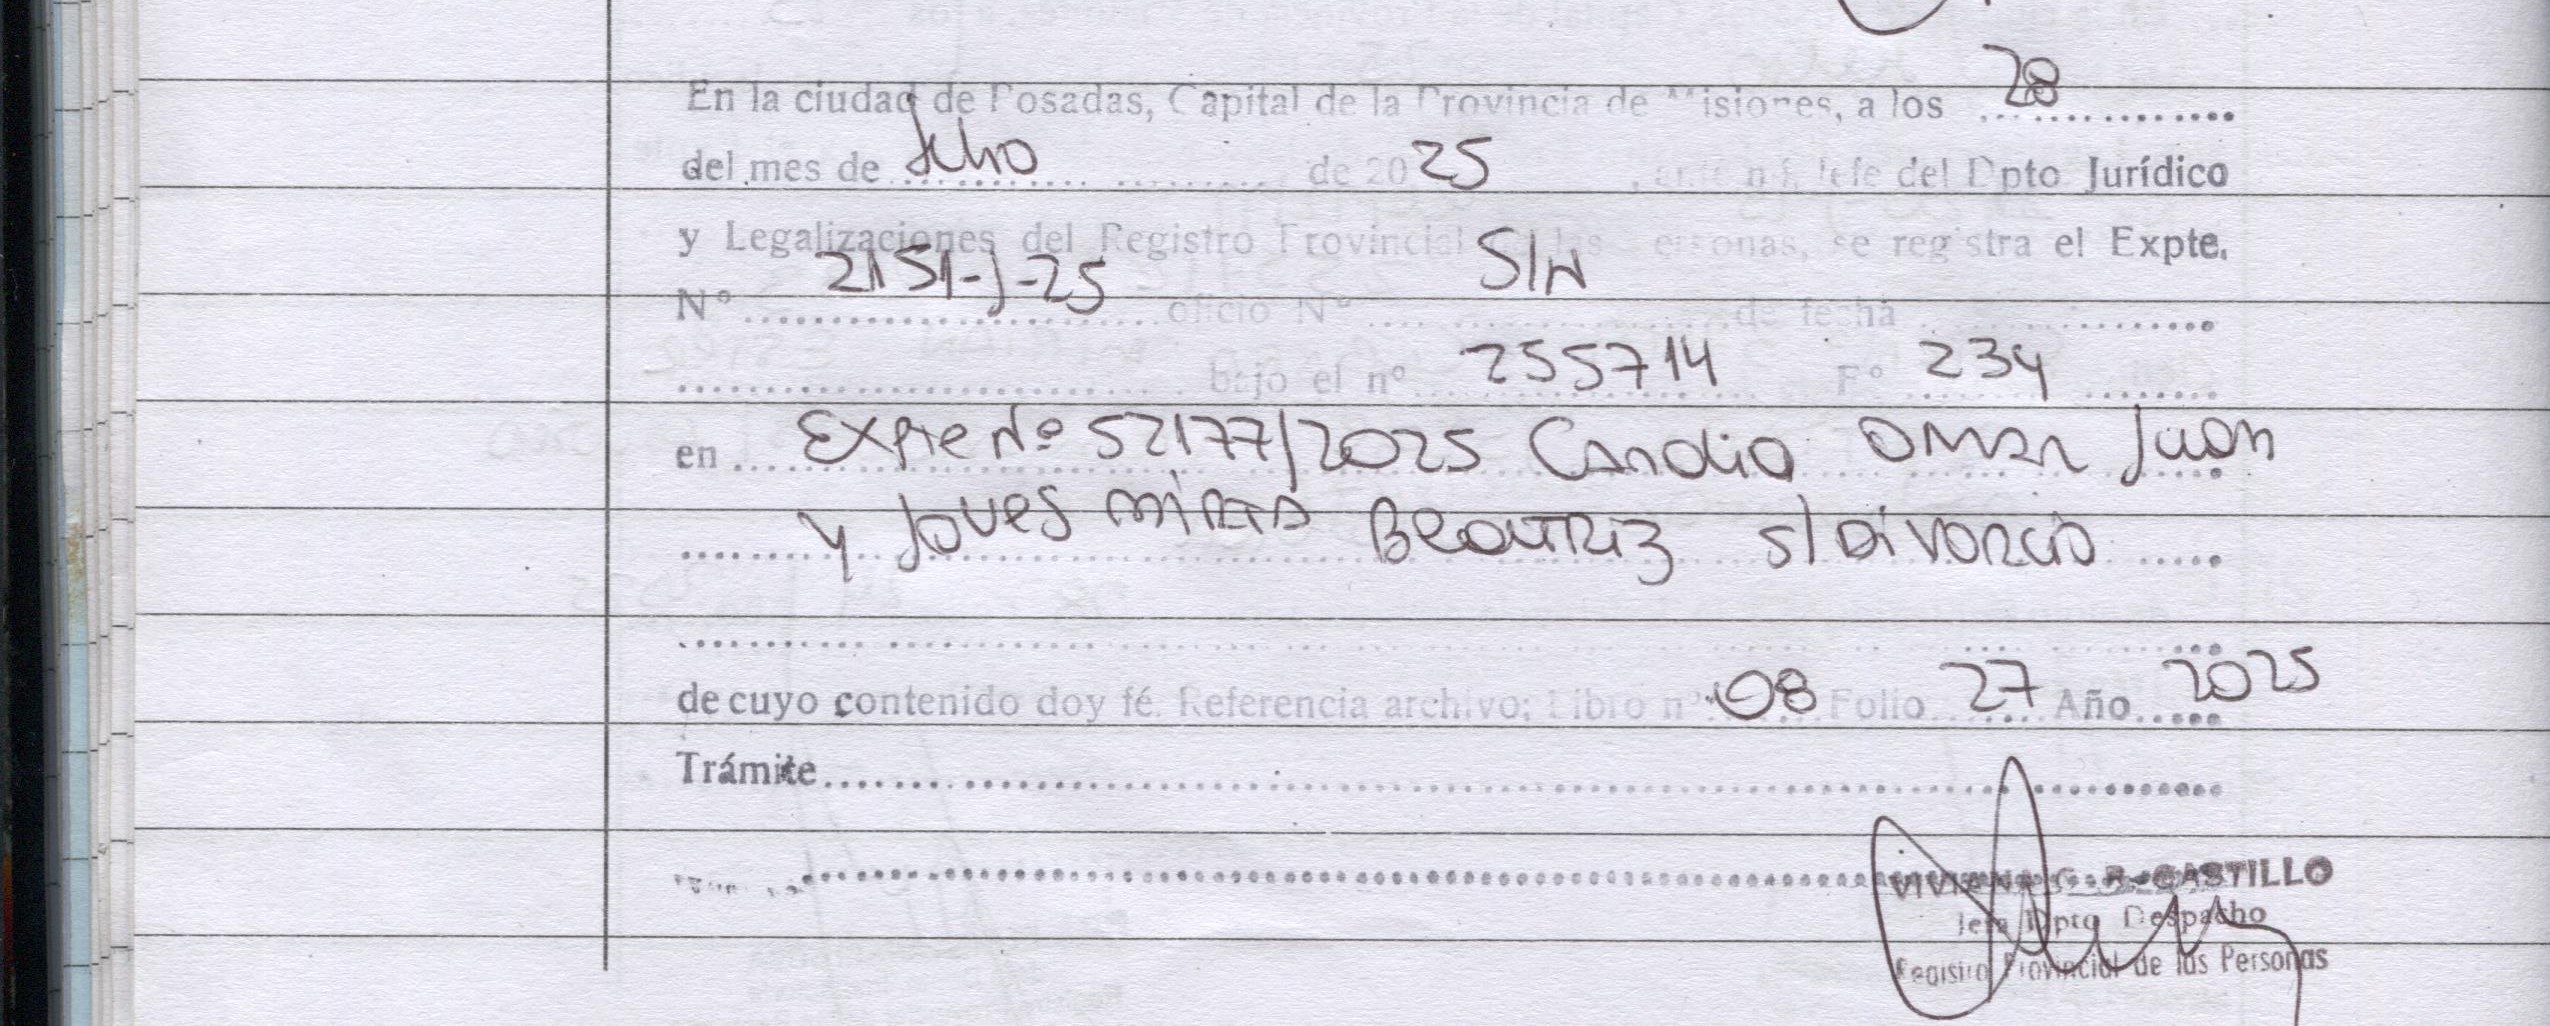 En la ciudad de Posadas, Capital de la Provincia de Misiones, a los 28
del mes de Julio de 2025, ante mí, Jefe del Dpto Jurídico
y Legalizaciones del Registro Provincial de las Personas, se registra el Expte.
Nº 2151-J-25 oficio Nº S/N de fecha
bajo el nº 255714 Fº 234
en Expte Nº 52177/2025 Candia Omar Juan
y Joves Mirta Beatriz s/ Divorcio
de cuyo contenido doy fé. Referencia archivo: Libro nº 08 Folio 27 Año 2025
Trámite
CASTILLO
Jefa Dpto Despacho
Registro Provincial de las Personas